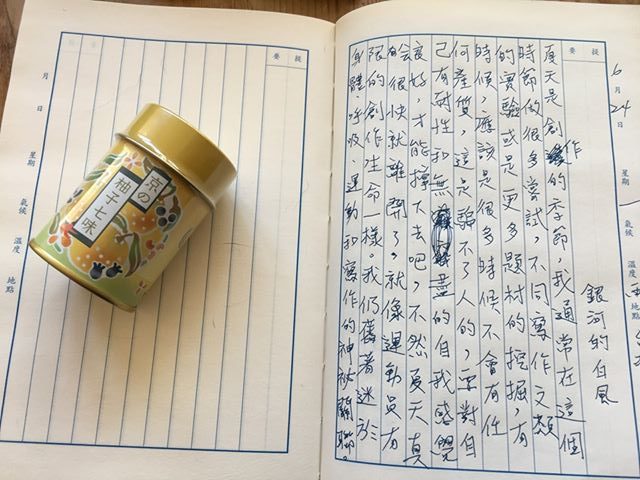 提要
6月24日
星期
氣候
溫度
地點
銀河的自風
夏天是創作的季節,我通常在這個
時節做很多嘗試,不同寫作文類
的實驗或是更多題材的挖掘,有
時候,應該是很多時候不會有任
何產質,這是騙不了人的,要對自
己有耐性和無盡的自我感覺
良好,才能撐下去吧,不然夏天真
會很快就離開了,就像運動員有
限的創作生命一樣。我仍舊著迷於
身體、呼吸、運動和寫作的神祕關聯。
提要
月
日
星期
氣候
溫度
地點
京の
柚子七味